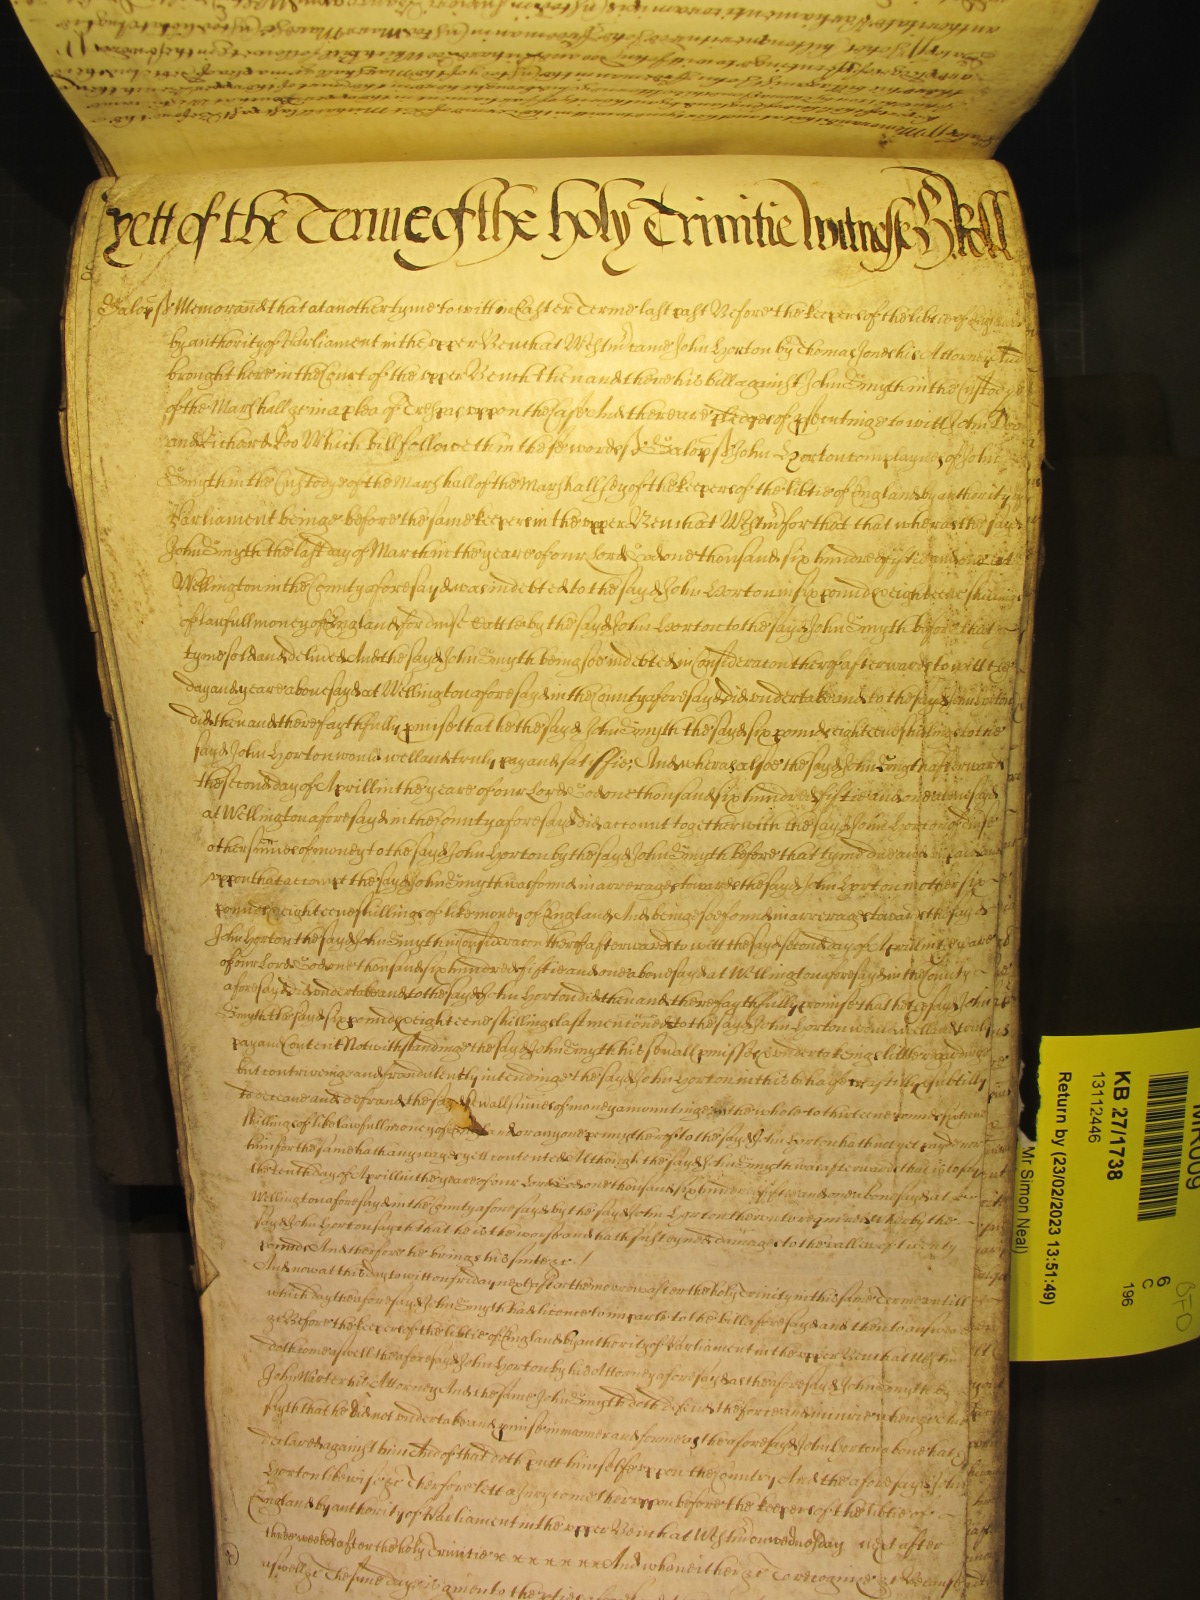 yett of the Terme of the holy Trinitie Witnesse H. Roll
Salop ss Memorand that at another tyme to witt in Easter Terme last past Before the keepers of the libtie of England
by authority of Parliament in the upper Bench at Westmr came John Horton by Thomas Jones his Attorney And
brought here in the Court of the upper Bench then and there his bill against John Smyth in the Custodye
of the Marshall &c in a plea of Trespas uppon the Case And there are pledges of psecutinge to witt John Doo
and Richard Roo Which bill followeth in these words ss Salop ss John Horton complaynes of John
Smyth in the Custodye of the Marshall of the Marshallsey of the keepers of the libtie of England by authority of
Parliament beinge before the same keepers in the upper Bench at Westmr for that that whereas the sayd
John Smyth the last day of March in the yeare of our Lord God one thousand six hundred fiftie and one at
Wellington in the County aforesayd was indebted to the sayd John Horton in six pounds eighteene shillings
of lawfull money of England for divse Cattle by the sayd John Horton to the sayd John Smyth before that
tyme sold and delived And the sayd John Smyth being soe indebted in Consideracon therof afterwards to witt the
day and yeare abovesayd at Wellington aforesayd in the County aforesayd did undertake and to the sayd John Horton
did then and there faythfully pmise that he the sayd John Smyth the sayd six pounds eighteene shillings to the
sayd John Horton would well and truly pay and satisffie; And wheras alsoe the sayd John Smyth afterward
the second day of Aprill in the yeare of our Lord God one thousand six hundred fiftie and one abovesayd
at Wellington aforesayd in the County aforesayd did account together with the sayd John Horton of divse
other sumes of money to the sayd John Horton by the sayd John Smyth before that tyme due and
uppon that accompt the sayd John Smyth was found in arrerages towards the sayd John Horton in other six
pounds eighteene shillings of like money of England And beinge soe found in arrerages towards the sayd
John Horton the sayd John Smyth in Consideracon therof afterwards to witt the sayd second day of Aprill in the yeare
of our Lord God one thousand six hundred fiftie and one abovesayd at Wellington aforesayd in the County
aforesayd did undertake and to the sayd John Horton did then and there faythfully promise that he the sayd John
Smyth the sayd six pounds eighteene shillings last mentioned to the sayd John Horton would well and truly
pay and Content Notwithstandinge the sayd John Smyth his sevall pmisses & undertakings litle regardinge
but contriveinge and fraudulently intendinge the sayd John Horton in this behalfe craftilly & subtilly
to deceave and defraud the sayd sevall sumes of money amountinge in the whole to thirteene pounds sixteene
shillings of like lawfull money of England or any one penny therof to the sayd John Horton hath not yet payd nor
him for the same hath any wayes yett contented Although the sayd John Smyth was afterwards that is to say
the tenth day of Aprill in the yeare of our Lord God one thousand six hundred fiftie and one abovesayd at
Wellington aforesayd in the County aforesayd by the sayd John Horton therunto required wherby the
sayd John Horton sayeth that he is the worse and hath susteyned damages to the vallue of twenty
pounds And therfore he brings his suite &c
And now at this day to witt on friday next after the morrow after the holy Trinity in this same Terme untill
which day the aforesayd John Smyth had licence to imparle to the bill aforesayd and then to answeare
&c Before the keepers of the libtie of England by authority of Parliament in the upper Bench at Westmr
doth come aswell the aforesayd John Horton by his Attorney aforesayd as the aforesayd John Smyth by
John Walter his Attorney And the same John Smyth doth defend the force and iniurie when &c And
sayth that he did not undertake and pmise in manner and forme as the aforesayd John Horton above hath
declared against him And of that doth putt himselfe uppon the Country And the aforesayd John
Horton likewise &c Therfore lett a Jury come therupon before the keepers of the libtie of
England by authority of Parliament in the upper Bench at Westmr on wednesday next after
three weeks after the holy Trinitie x x x x x x And who neither &c To recognize &c Because
aswell &c The same day is given to the pties
KB 27/1738
13112446
Return by (23/02/2023 13:51:49)
Mr Simon Neal)
6
C
196